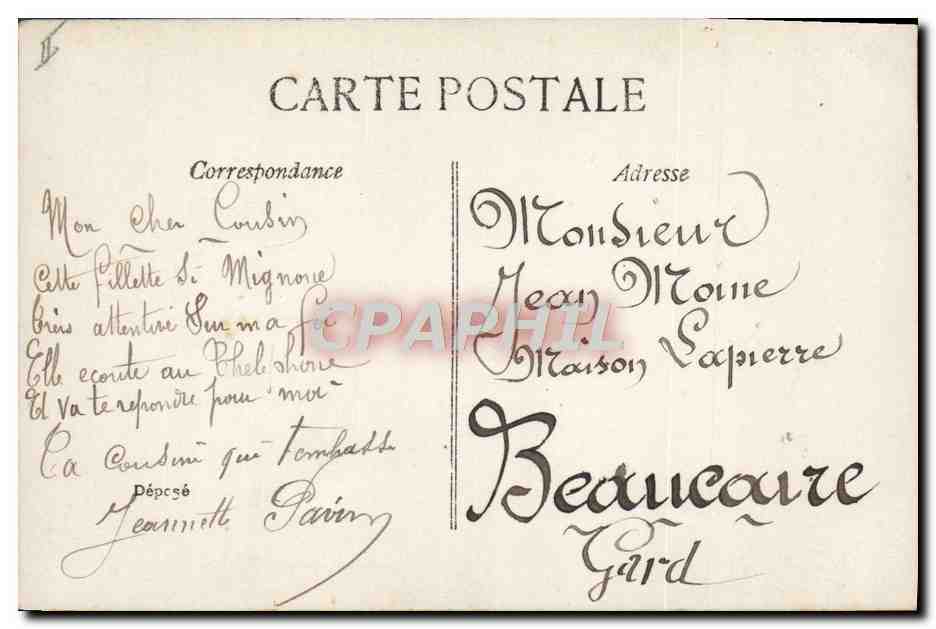 II
CARTE POSTALE
Correspondance
Mon cher Cousin
Cette fillette Si Mignone
très attentive Sur ma foi
Elle ecoute au Thelephone
Et va te repondre pour moi
Ta cousine qui t'embasse
Déposé
Jeannette Pavin
Adresse
Monsieur
Jean Moine
Maison Lapierre
Beaucaire
Gard
CPAPHIL